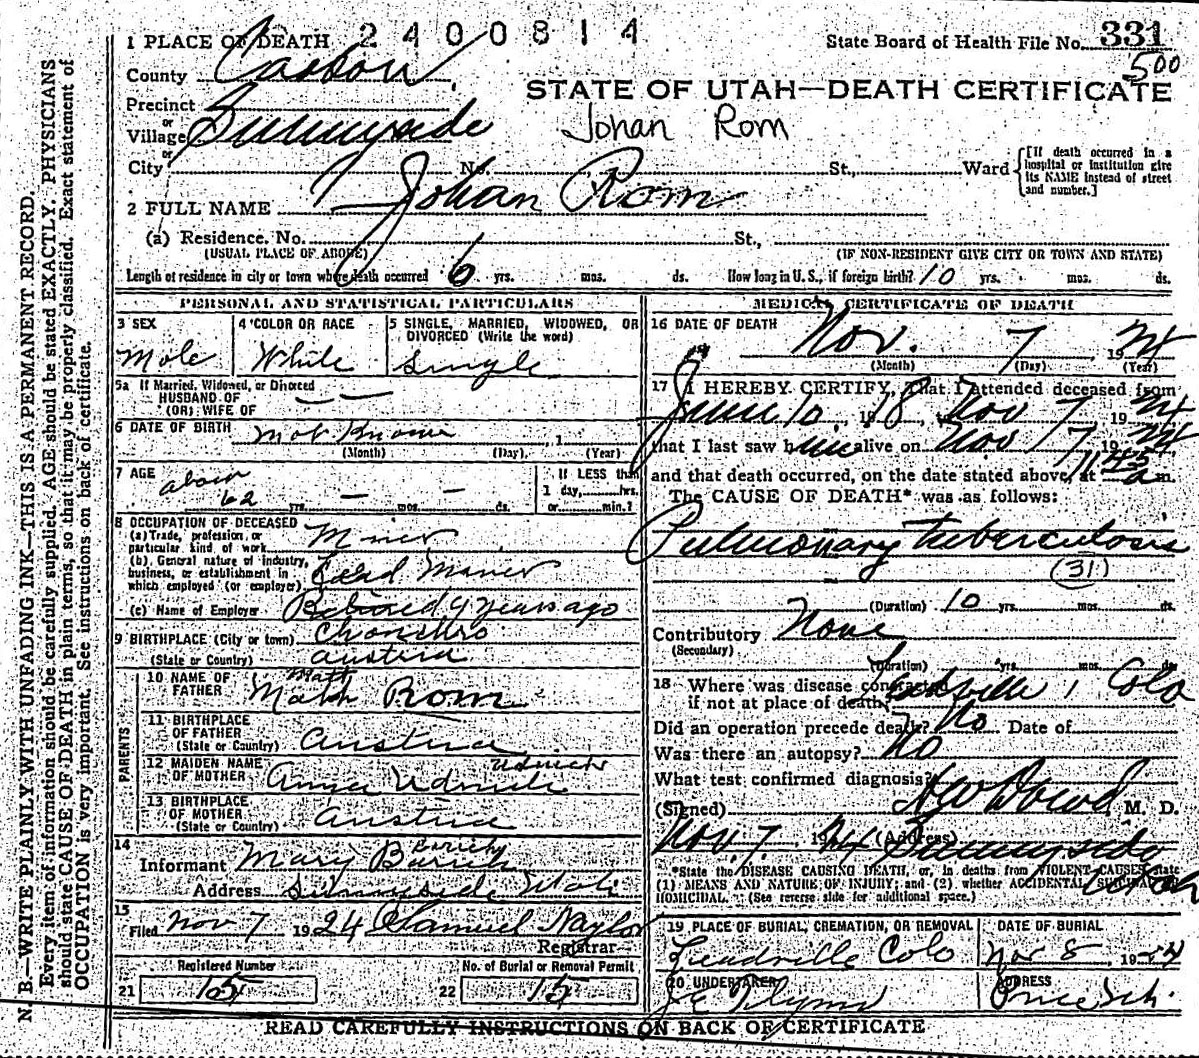 1 PLACE OF DEATH 2 4 0 0 8 1 4 State Board of Health File No. 331
500
County Carbon
STATE OF UTAH—DEATH CERTIFICATE
Precinct
or
Village Sunnyside
Johan Rom
or
City No. St., Ward [If death occurred in a hospital or institution give its NAME instead of street and number.]
2 FULL NAME Johan Rom
(a) Residence. No. St.,
(USUAL PLACE OF ABODE) (IF NON-RESIDENT GIVE CITY OR TOWN AND STATE)
Length of residence in city or town where death occurred 6 yrs. mos. ds. How long in U. S., if foreign birth? 10 yrs. mos. ds.
PERSONAL AND STATISTICAL PARTICULARS
3 SEX 4 COLOR OR RACE 5 SINGLE, MARRIED, WIDOWED, OR
DIVORCED (Write the word)
Male White Single
5a If Married, Widowed, or Divorced
HUSBAND OF
(OR) WIFE OF — —
6 DATE OF BIRTH Not Known , 1
(Month) (Day), (Year)
7 AGE about 62 yrs. — mos. — ds. If LESS than
1 day, hrs.
or min.?
8 OCCUPATION OF DECEASED
(a) Trade, profession, or
particular kind of work Miner
(b) General nature of industry,
business, or establishment in
which employed (or employer)
(c) Name of Employer Retired 9 years ago
9 BIRTHPLACE (City or town)
(State or Country) Austria
10 NAME OF
FATHER Matt Rom
11 BIRTHPLACE
OF FATHER
(State or Country) Austria
12 MAIDEN NAME
OF MOTHER Anna Udovich
13 BIRTHPLACE
OF MOTHER
(State or Country) Austria
PARENTS
14
Informant Mary
Address Sunnyside Utah
15
Filed Nov 7 1924 Samuel Naylor
Registrar
Registered Number No. of Burial or Removal Permit
21 15 22 15
MEDICAL CERTIFICATE OF DEATH
16 DATE OF DEATH
Nov. 7, 1924
(Month) (Day) (Year)
17 I HEREBY CERTIFY, That I attended deceased from
June 10, 1918, Nov 7, 1924
that I last saw him alive on Nov. 7 1924
and that death occurred, on the date stated above, at 11 45 a m.
The CAUSE OF DEATH* was as follows:
Pulmonary tuberculosis
(31)
(Duration) 10 yrs. mos. ds.
Contributory None
(Secondary)
(Duration) yrs. mos. ds.
18 Where was disease contracted
if not at place of death? Leadville, Colo
Did an operation precede death? No Date of
Was there an autopsy? No
What test confirmed diagnosis?
(Signed) M. D.
Nov. 7, 1924 (Address) Sunnyside Utah
*State the DISEASE CAUSING DEATH, or, in deaths from VIOLENT CAUSES, state
(1) MEANS AND NATURE OF INJURY; and (2) whether ACCIDENTAL, SUICIDAL,
HOMICIDAL. (See reverse side for additional space.)
19 PLACE OF BURIAL, CREMATION, OR REMOVAL DATE OF BURIAL
Leadville Colo Nov 8 1924
20 UNDERTAKER ADDRESS
J E Flynn Price Ut.
READ CAREFULLY INSTRUCTIONS ON BACK OF CERTIFICATE
N. B.—WRITE PLAINLY WITH UNFADING INK—THIS IS A PERMANENT RECORD.
Every item of information should be carefully supplied. AGE should be stated EXACTLY. PHYSICIANS
should state CAUSE OF DEATH in plain terms, so that it may be properly classified. Exact statement of
OCCUPATION is very important. See instructions on back of certificate.